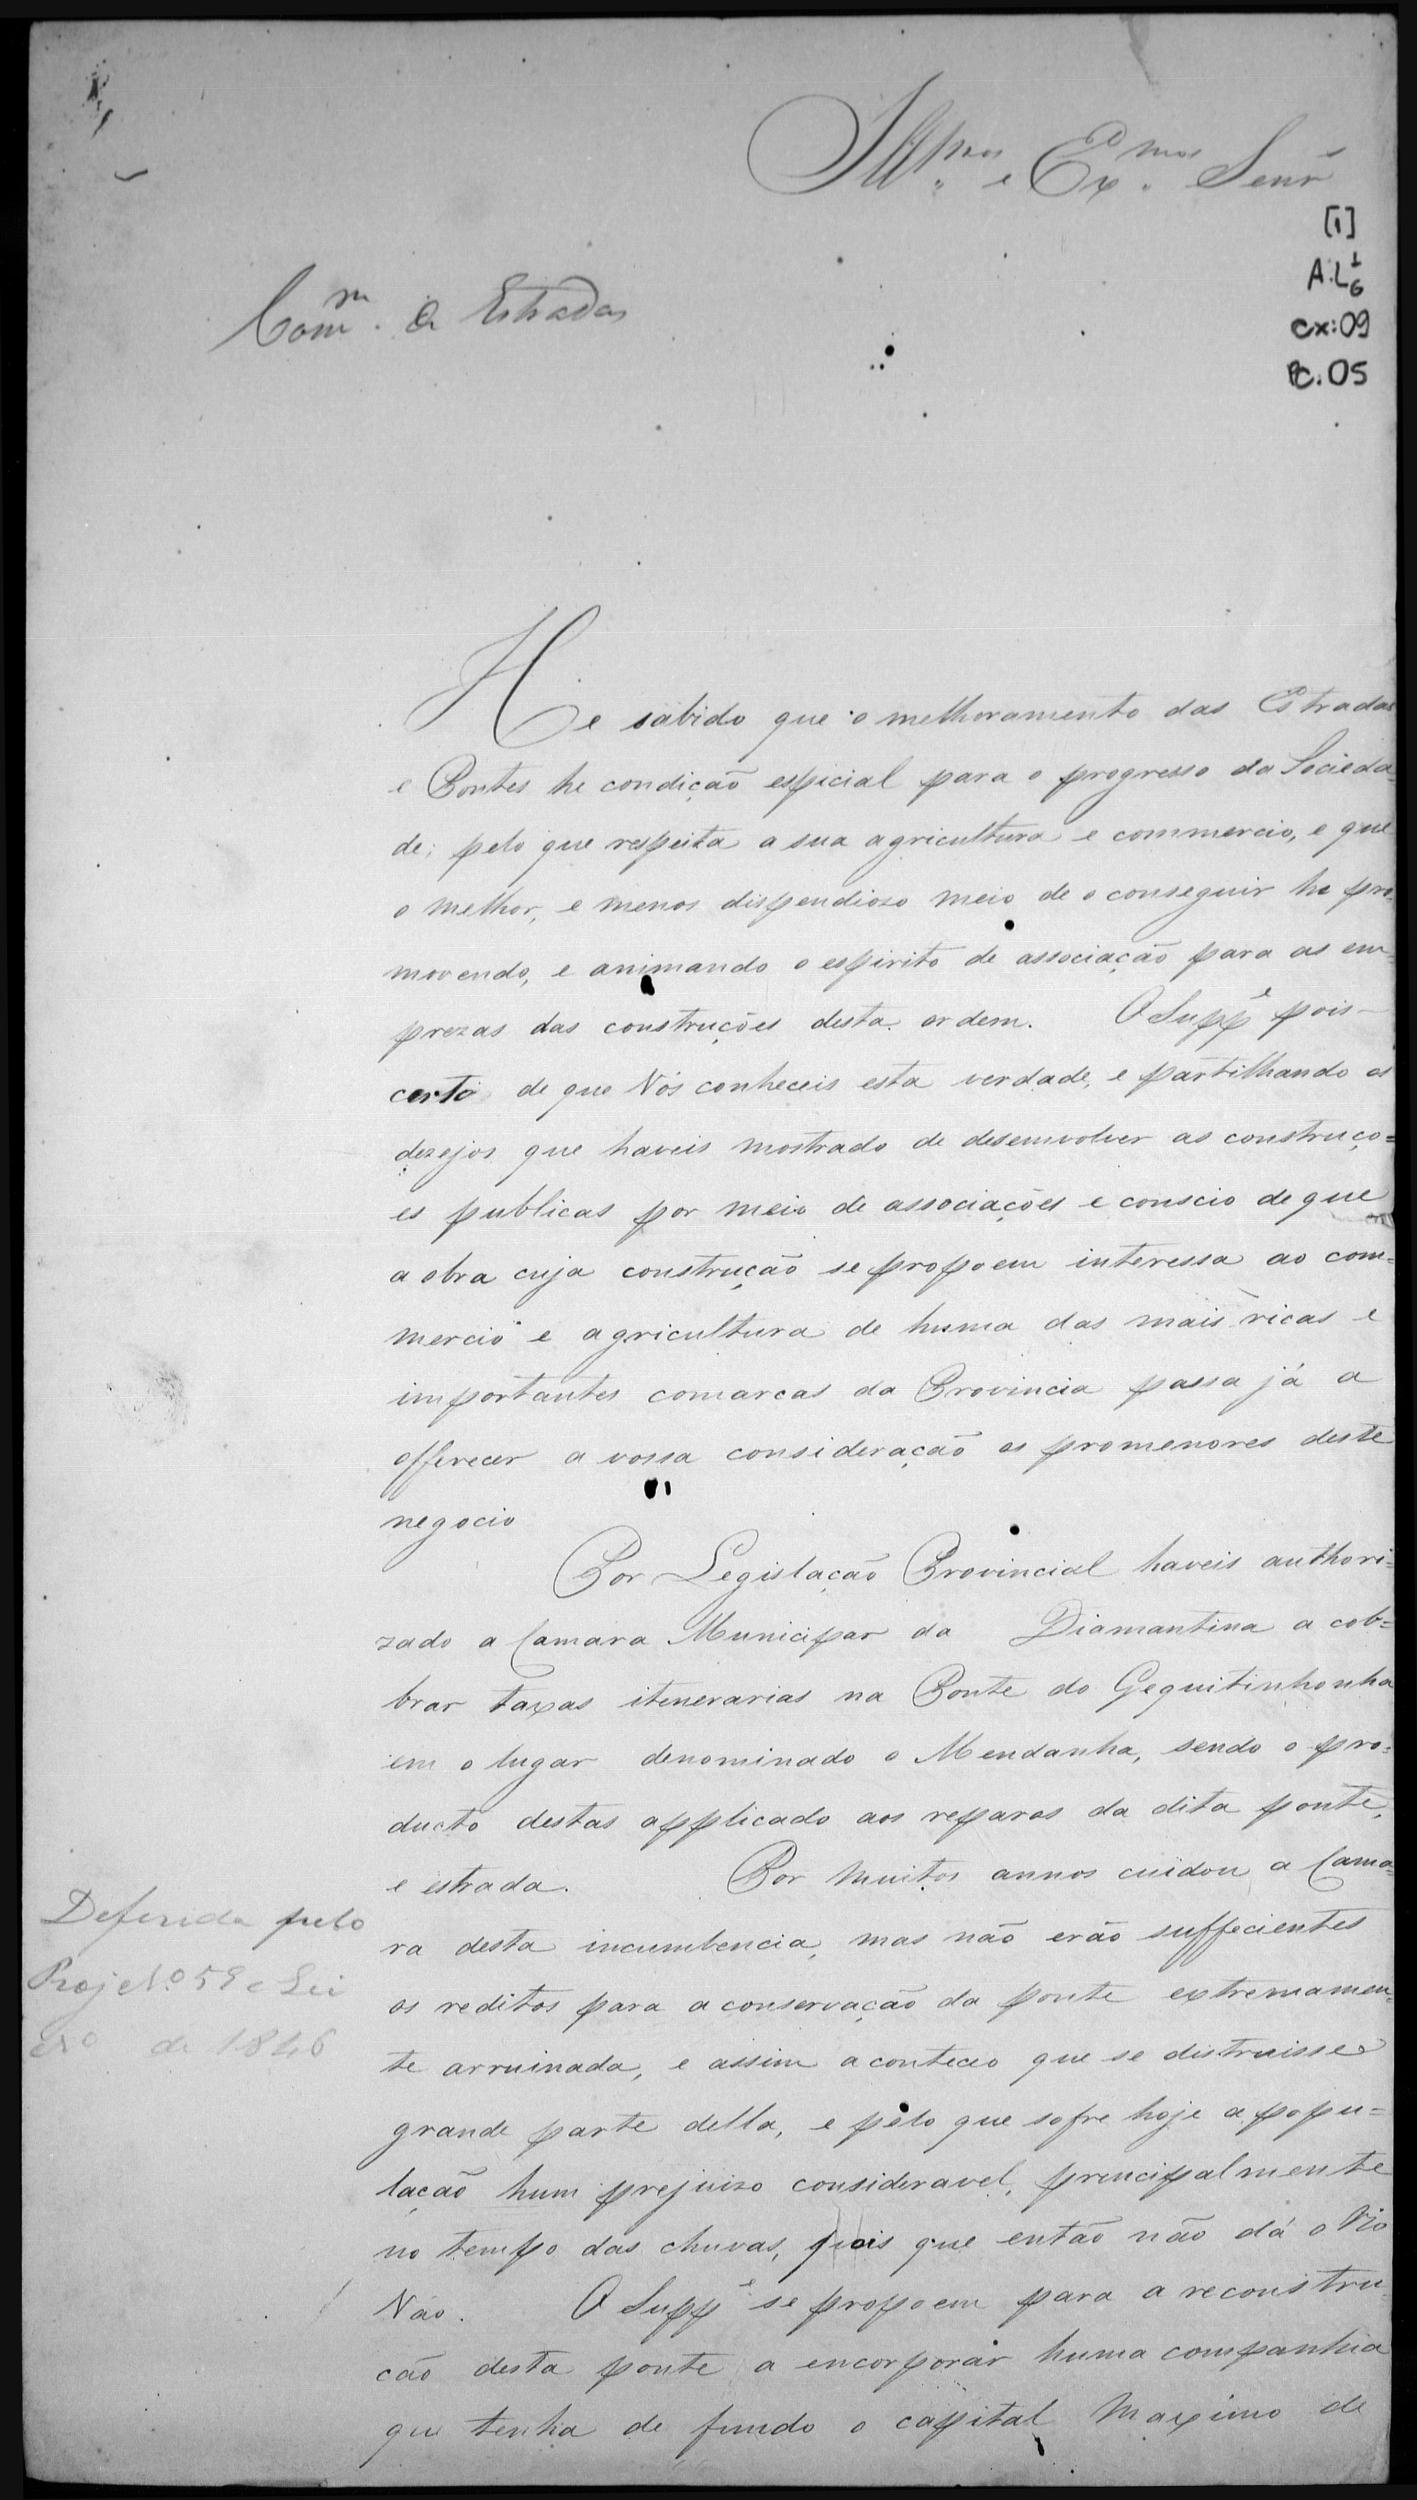 Illmos e Exmos Senrs
[1]
A.L 1/6
cx:09
Pc.05
Comm. de Estradas
He sabido que o melhoramento das Estradas
e Pontes he condição espicial para o progresso da Socieda-
de; pelo que respeita a sua agricultura e commercio, e que
o melhor, e menos dispendioso meio de o conseguir he pro-
movendo, e animando o espirito de associação para as em-
prezas das construções desta ordem. O Suppe pois
certo de que Vós conheceis esta verdade, e partilhando os
dezejos que haveis mostrado de desemvolver as construço=
es publicas por meio de associações e conscio de que
a obra cuja construção se propoem interessa ao com-
mercio e agricultura de huma das mais ricas e
importantes comarcas da Provincia passa já a
offerecer a vossa consideração os promenores deste
negocio
Por Legislação Provincial haveis authori-
zado a Camara Municipar da Diamantina a cob=
brar taxas itenerarias na Ponte do Gequitinhonha
em o lugar denominado o Mendanha, sendo o pro=
ducto destas applicado aos reparos da dita ponte,
e estrada. Por muitos annos cuidou a Cama=
ra desta incumbencia, mas não erão suffecientes
os reditos para a conservação da ponte extremamen-
te arruinada, e assim aconteceo que se distruisse
grande parte della, e pelo que sofre hoje a popu=
lação hum prejuizo consideravel, prencipalmente
no tempo das chuvas, pois que então não dá o Rio
Váo. O Suppe se propoem para a reconstru
cão desta ponte a encorporar huma companhia
que tenha de fundo o capital Maximo de
Deferida pelo
Proje No 59 e Lei
No de 1846